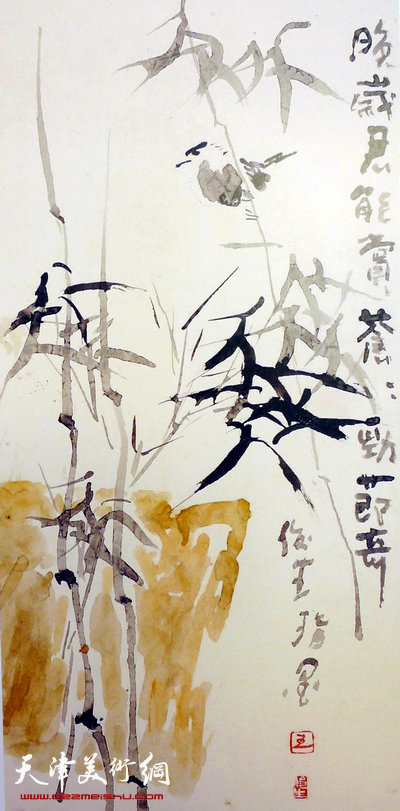 晚歲君能賞蒼〻勁節奇
俊生指墨
王
天津美術網
www.022meishu.com